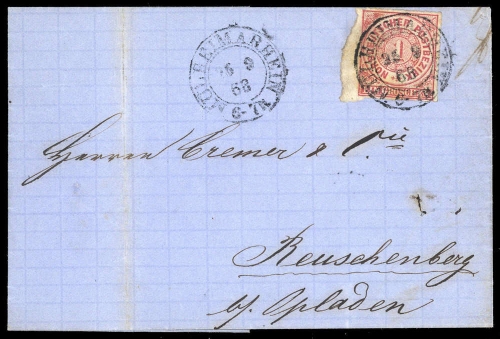 MÜLHEIM A RHEIN
25 9
68
6-7N
NORDDEUTSCHER POSTBEZIRK
1
Herren Cremer & Cie
Reuschenberg
b/ Opladen